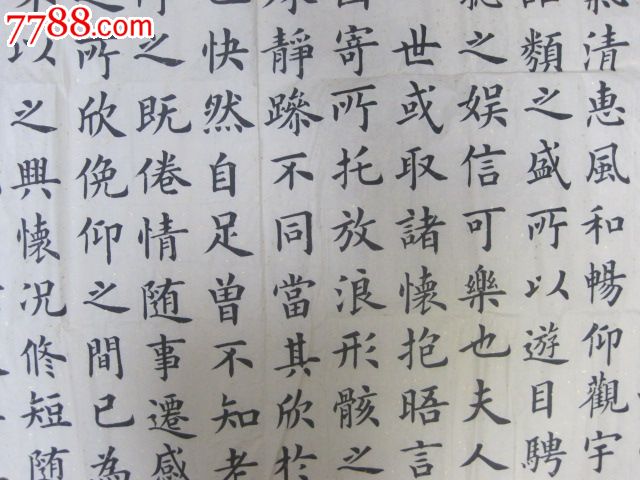 7788.com
氣清惠風和暢仰觀宇
品類之盛所以遊目騁
聽之娱信可樂也夫人
世或取諸懷抱晤言
因寄所托放浪形骸之
殊靜躁不同當其欣於
快然自足曾不知老
之既倦情随事遷感
之所欣俛仰之間已為
以之興懷況修短随